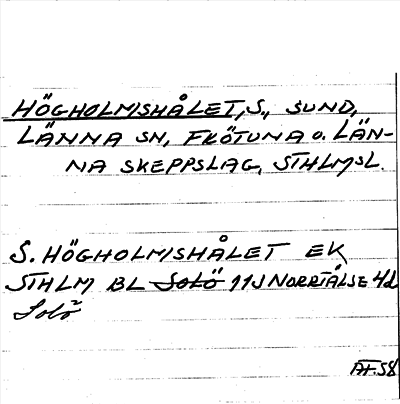 HÖGHOLMSHÅLET, S., SUND,
LÄNNA SN, FRÖTUNA O. LÄN-
NA SKEPPSLAG, STHLMSL.
S. HÖGHOLMSHÅLET EK
STHLM BL Solö 11J NORRTÄLSE 4d
Solö²
58